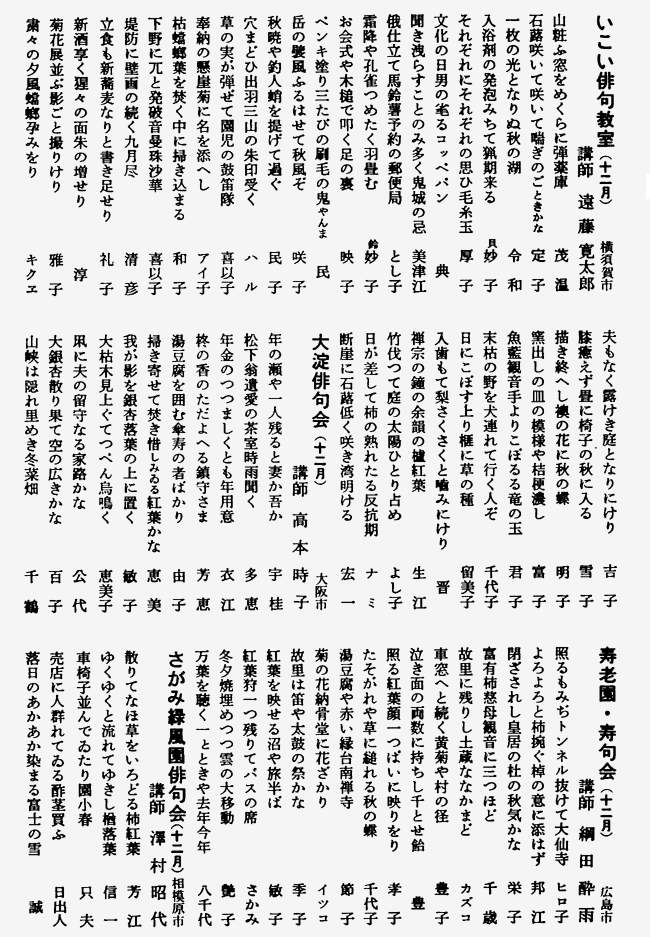 いこい俳句教室(十二月) 横須賀市
講師 遠藤 寛太郎
山粧ふ窓をめくらに弾薬庫 茂温
石蕗咲いて咲いて喘ぎのごときかな 定子
一枚の光となりぬ秋の湖 令和
入浴剤の発泡みちて猟期来る 貝妙子
それぞれにそれぞれの思ひ毛糸玉 厚子
文化の日男の毟るコッペパン 典
聞き洩らすことのみ多く鬼城の忌 美津江
俄仕立て馬鈴薯予約の郵便局 とし子
霜降や孔雀つめたく羽畳む 鈴妙子
お会式や木槌で叩く足の裏 映子
ペンキ塗り三たびの刷毛の鬼やんま 民
岳の襞風ふるはせて秋風ぞ 咲子
秋暁や釣人蛸を提げて過ぐ 民子
穴まどひ出羽三山の朱印受く ハル
草の実が弾ぜて園児の鼓笛隊 喜以子
奉納の懸崖菊に名を添へし アイ子
枯蟷螂葉を焚く中に掃き込まる 和子
下野に兀と発破音曼珠沙華 喜以子
堤防に壁画の続く九月尽 清彦
立食も新蕎麦なりと書き足せり 礼子
新酒享く猩々の面朱の増せり 淳
菊花展並ぶ影ごと撮りけり 雅子
粛々の夕風蟷螂孕みをり キクエ
夫もなく露けき庭となりにけり 吉子
膝癒えず畳に椅子の秋に入る 雪子
描き終へし襖の花に秋の蝶 明子
窯出しの皿の模様や桔梗濃し 富子
魚籃観音手よりこぼるる竜の玉 君子
末枯の野を犬連れて行く人ぞ 千代子
日にこぼす上り框に草の種 留美子
入歯もて梨さくさくと噛みにけり 晋
禅宗の鐘の余韻の櫨紅葉 生江
竹伐つて庭の太陽ひとり占め よし子
日が差して柿の熟れたる反抗期 ナミ
断崖に石蕗低く咲き湾明ける 宏一
大淀俳句会(十二月) 大阪市
講師 高本 時子
年の瀬や一人残ると妻か吾か 宇桂
松下翁遺愛の茶室時雨聞く 多恵
年金のつつましくとも年用意 衣江
柊の香のただよへる鎮守さま 芳恵
湯豆腐を囲む傘寿の者ばかり 由子
掃き寄せて焚き惜しみゐる紅葉かな 恵美
我が影を銀杏落葉の上に置く 敏子
大枯木見上ぐてつぺん烏鳴く 恵美子
凩に夫の留守なる家路かな 公代
大銀杏散り果て空の広きかな 百子
山峡は隠れ里めき冬菜畑 千鶴
寿老園・寿句会(十二月) 広島市
講師 綱田 酔雨
照るもみぢトンネル抜けて大仙寺 ヒロ子
よろよろと柿捥ぐ棹の意に添はず 邦江
閉ざされし皇居の杜の秋気かな 栄子
富有柿慈母観音に三つほど 千歳
故里に残りし土蔵ななかまど カズコ
車窓へと続く黄菊や村の径 豊子
泣き面の両数に持ちし千とせ飴 豊
照る紅葉顔一つぱいに映りをり 孝子
たそがれや草に縋れる秋の蝶 千代子
湯豆腐や赤い縁台南禅寺 節子
菊の花納骨堂に花ざかり イツコ
故里は笛や太鼓の祭かな 季子
紅葉を映せる沼や旅半ば 敏子
紅葉狩一つ残りてバスの席 さかみ
冬夕焼埋めつつ雲の大移動 艶子
万葉を聴く一とときや去年今年 八千代
さがみ緑風園俳句会(十二月) 相模原市
講師 澤村 昭代
散りてなほ草をいろどる柿紅葉 芳江
ゆくゆくと流れてゆきし楢落葉 信一
車椅子並んでゐたり園小春 只夫
売店に人群れてゐる酢茎買ふ 日出人
落日のあかあか染まる富士の雪 誠